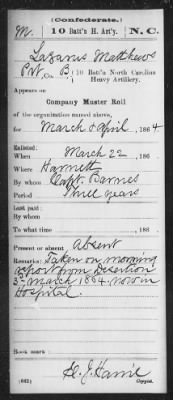 (Confederate.)
M. 10 Batt'n H. Art'y. N.C.
Lazarus Matthews
Pvt, Co. B, 10 Batt'n North Carolina
Heavy Artillery.
Appears on
Company Muster Roll
of the organization named above,
for March & April, 1864
Enlisted:
When March 22, 186
Where Harnett
By whom Capt. Barnes
Period Three years
Last paid:
By whom
To what time , 186
Present or absent Absent
Remarks: Taken on morning
report from desertion
5" march 1864. now in
Hospital.
Book mark:
(642) Copyist.